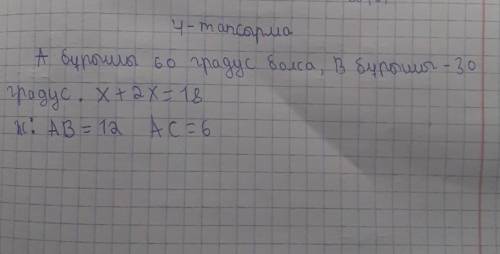 4-тапсырма
A бұрышы 60 градус болса, B бұрышы - 30
градус. x + 2x = 18
ж: AB = 12 AC = 6